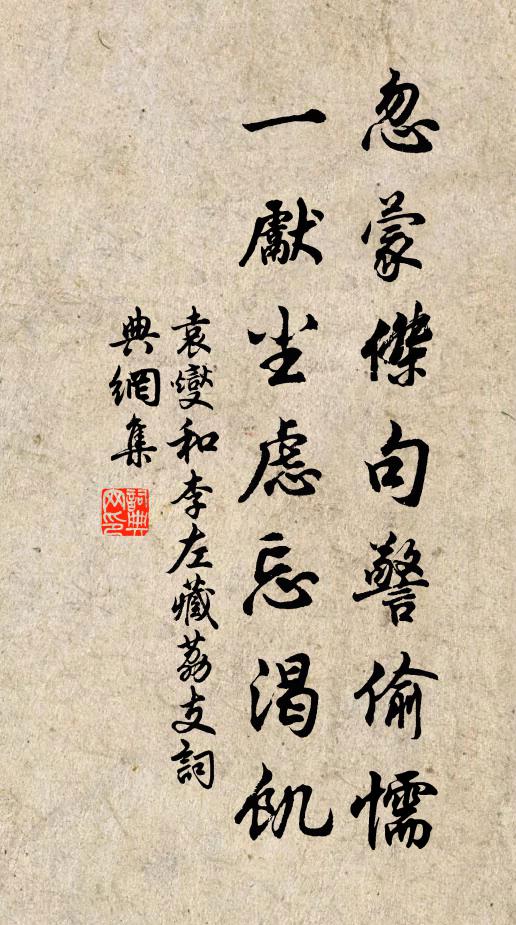 忽蒙傑句警偷懦
一獻坐慮忘渴飢
袁燮和李左藏荔支詞
典網集
詞典网印